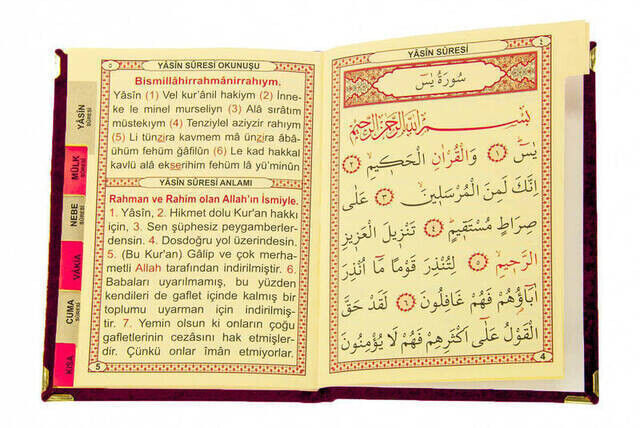 YÂSİN
SÛRESİ
MÜLK
SÛRESİ
NEBE
SÛRESİ
VÂKIA
CUMA
SÛRESİ
KISA
٥
YÂSİN SÛRESİ OKUNUŞU
Bismillâhirrahmânirrahıym.
Yâsîn (1) Vel kur'ânil hakiym (2) İnne-
ke le minel murseliyn (3) Alâ sırâtım
müstekıym (4) Tenziylel aziyzir rahıym
(5) Li tünzira kavmem mâ ünzira âbâ-
ühüm fehüm ğâfilûn (6) Le kad hakkal
kavlü alâ ekserihim fehüm lâ yü'minûn
YÂSİN SÛRESİ ANLAMI
Rahman ve Rahim olan Allah'ın İsmiyle.
1. Yâsîn, 2. Hikmet dolu Kur'an hakkı
için, 3. Sen şüphesiz peygamberler-
densin. 4. Dosdoğru yol üzerindesin.
5. (Bu Kur'an) Gâlip ve çok merha-
metli Allah tarafından indirilmiştir. 6.
Babaları uyarılmamış, bu yüzden
kendileri de gaflet içinde kalmış bir
toplumu uyarman için indirilmiş-
tir. 7. Yemin olsun ki onların çoğu
gafletlerinin cezasını hak etmişler-
dir. Çünkü onlar îmân etmiyorlar.
5
YÂSİN SÛRESİ
٤
سُورَةُ يٰسٓ
بِسْمِ اللّٰهِ الرَّحْمٰنِ الرَّحِيمِ
يٰسٓ ﴿١﴾ وَالْقُرْاٰنِ الْحَكِيمِ ﴿٢﴾
اِنَّكَ لَمِنَ الْمُرْسَلِينَ ﴿٣﴾ عَلٰى
صِرَاطٍ مُسْتَقِيمٍ ﴿٤﴾ تَنْزِيلَ الْعَزِيزِ
الرَّحِيمِ ﴿٥﴾ لِتُنْذِرَ قَوْمًا مَٓا اُنْذِرَ
اٰبَٓاؤُ۬هُمْ فَهُمْ غَافِلُونَ ﴿٦﴾ لَقَدْ حَقَّ
الْقَوْلُ عَلٰٓى اَكْثَرِهِمْ فَهُمْ لَا يُؤْمِنُونَ
4